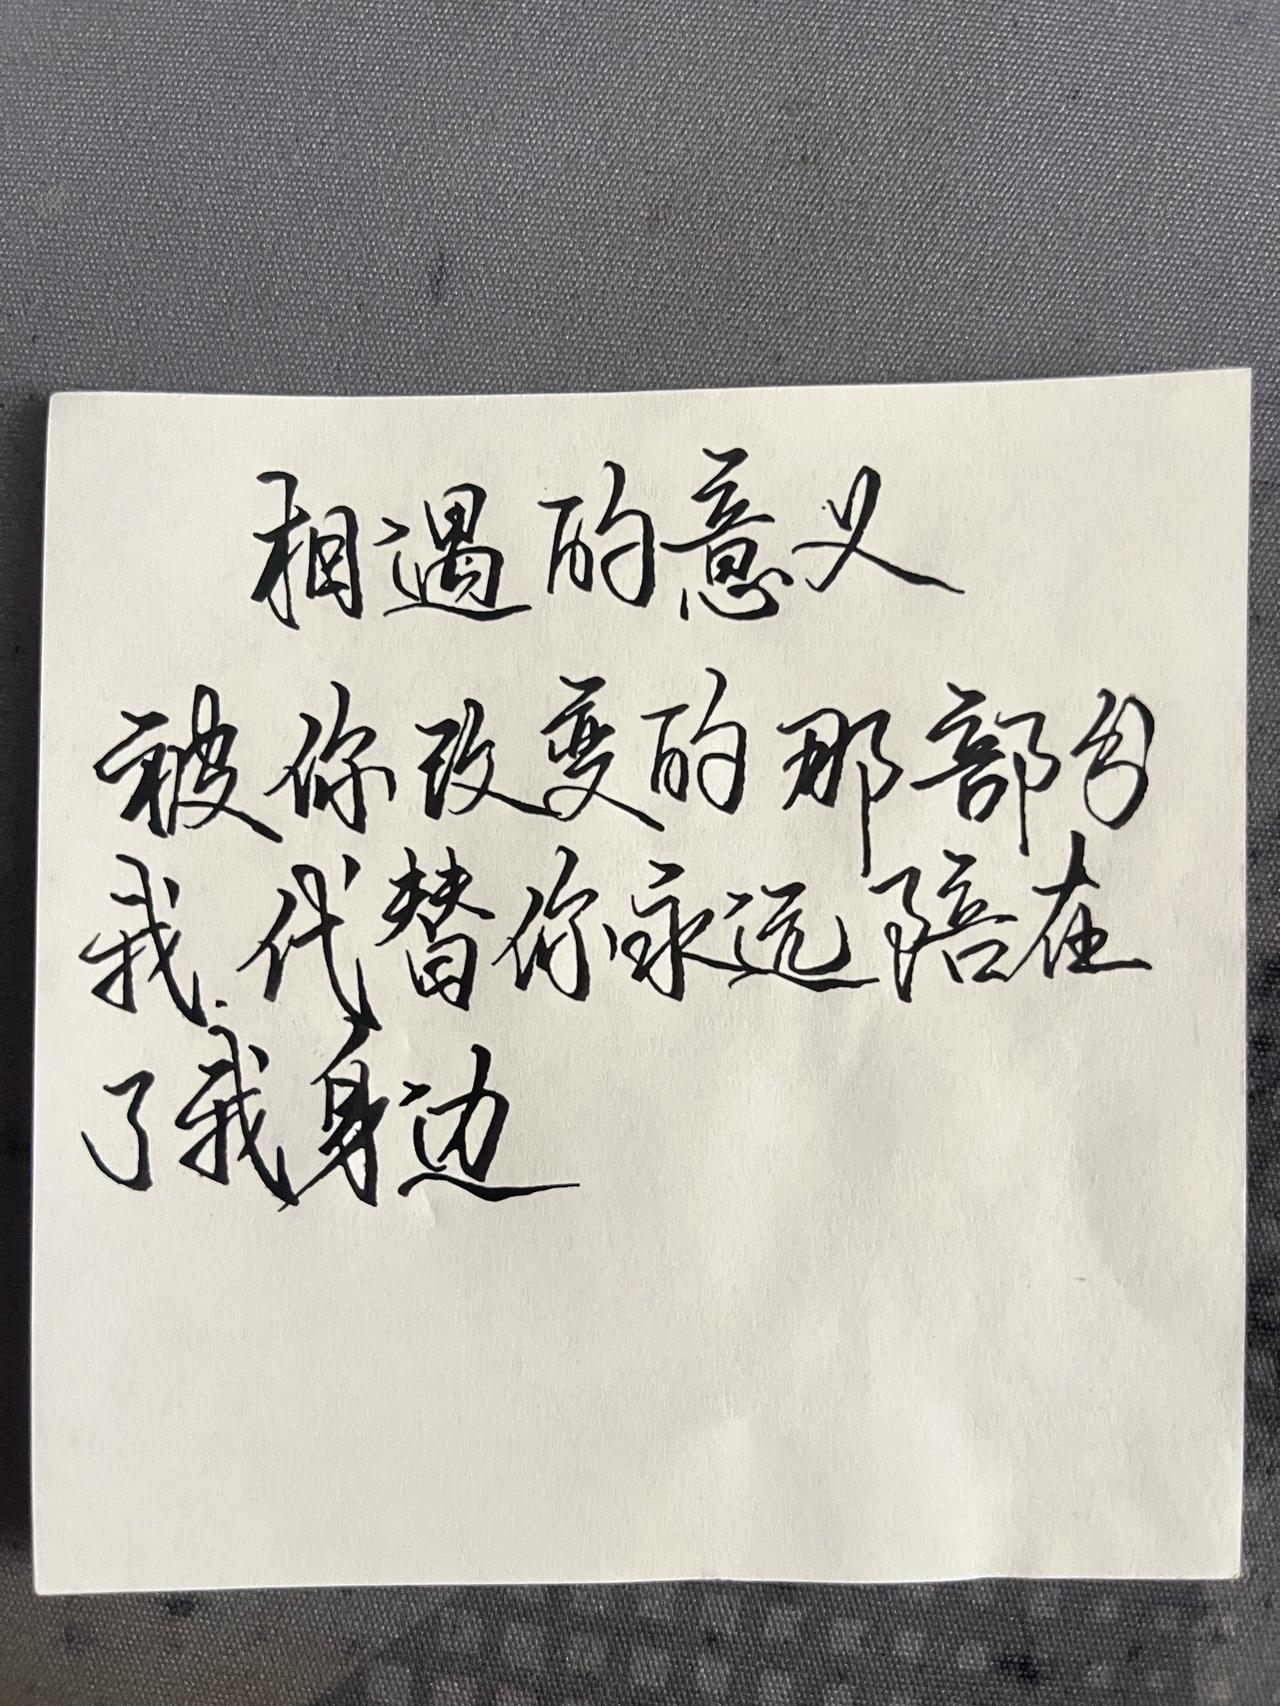 相遇的意义
被你改变的那部分
我.代替你永远陪在
了我身边